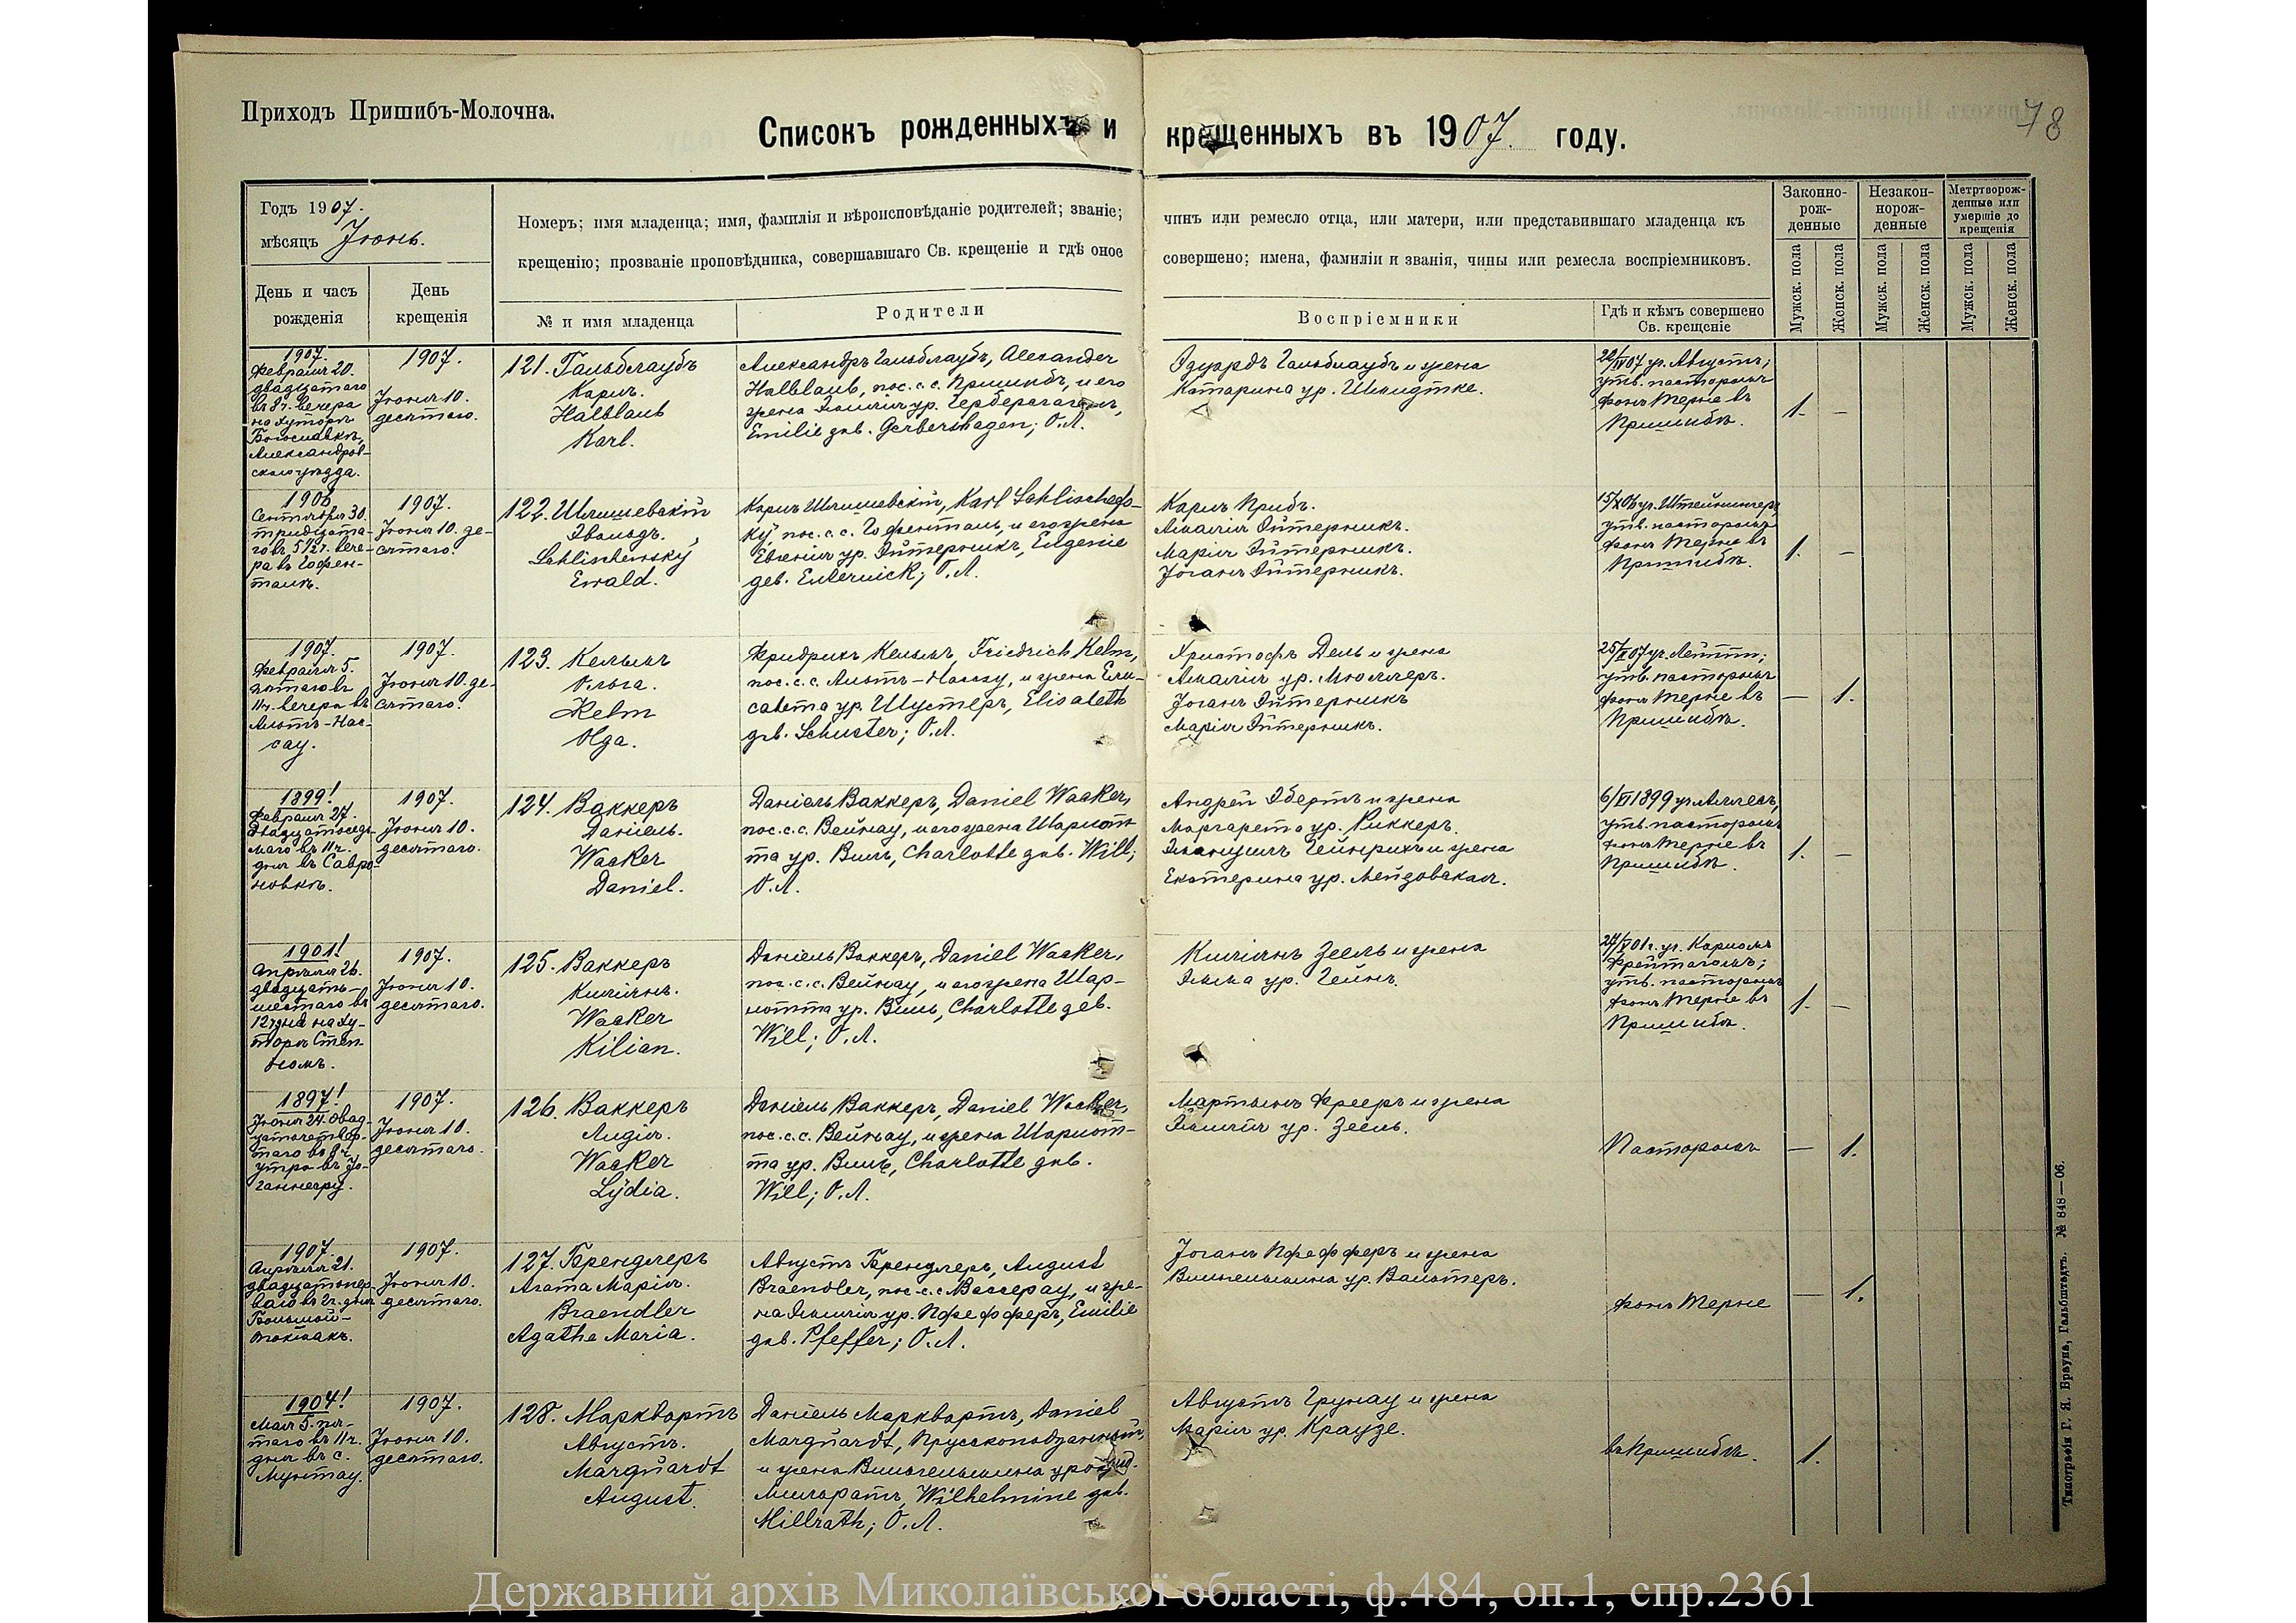 Приходъ Пришибъ-Молочна.
78
Списокъ рожденныхъ и крещенныхъ въ 1907. году.
Годъ 1907.
мѣсяцъ Іюнь.
Номеръ; имя младенца; имя, фамилія и вѣроисповѣданіе родителей; званіе; чинъ или ремесло отца, или матери, или представившаго младенца къ
крещенію; прозваніе проповѣдника, совершавшаго Св. крещеніе и гдѣ оное совершено; имена, фамиліи и званія, чины или ремесла воспріемниковъ.
Законно-
рож-
денные
Незакон-
норож-
денные
Метртворож-
денные или
умершіе до
крещенія
День и часъ
рожденія
День
крещенія
№ и имя младенца
Родители
Воспріемники
Гдѣ и кѣмъ совершено
Св. крещеніе
Мужск. пола
Женск. пола
Мужск. пола
Женск. пола
Мужск. пола
Женск. пола
1907.
Февраля 20.
двадцатаго
въ 8 ч. вечера
на хуторѣ
Богословкѣ,
Александров-
скаго уѣзда.
1907.
Іюня 10.
десятаго.
121. Гальблаубъ
Карлъ.
Halblaub
Karl.
Александръ Гальблаубъ, Alexander
Halblaub, пос. с. с. Пришибъ, и его
жена Эмилія ур. Герберсгагенъ,
Emilie geb. Gerbershagen; О.Л.
Эдуардъ Гальблаубъ и жена
Катарина ур. Шмидтке.
уч. Августъ;
утв. пасторомъ
фонъ Терне въ
Пришибѣ.
1. —
1906
Сентября 30.
тридцата-
го въ 5 1/2 ч. вече-
ра въ Гофен-
талѣ.
1907.
Іюня 10. де-
сятаго.
122. Шлишевскій
Эвальдъ.
Schlischewsky
Ewald.
Карлъ Шлишевскій, Karl Schlischews-
ky, пос. с. с. Гофенталь, и его жена
Евгенія ур. Эйтерникъ, Eugenie
geb. Euternick; О.Л.
Карлъ Прибъ.
Амалія Эйтерникъ.
Марія Эйтерникъ.
Іоганъ Эйтерникъ.
утв. пасторомъ
фонъ Терне въ
Пришибѣ.
1. —
1907.
Февраля 5.
пятаго въ
11 ч. вечера въ
Альтъ-Нас-
сау.
1907.
Іюня 10. де-
сятаго.
123. Кельмъ
Ольга.
Kelm
Olga.
Фридрихъ Кельмъ, Friedrich Kelm,
пос. с. с. Альтъ-Нассау, и жена Ели-
савета ур. Шустеръ, Elisabeth
geb. Schuster; О.Л.
Христофъ Дель и жена
Амалія ур. Мюллеръ.
Іоганъ Эйтерникъ
Марія Эйтерникъ.
утв. пасторомъ
фонъ Терне въ
Пришибѣ.
— 1.
1899!
Февраля 27.
двадцатоседь-
маго въ 11 ч.
дня въ Савро-
новкѣ.
1907.
Іюня 10.
десятаго.
124. Ваккеръ
Даніель.
Wacker
Daniel.
Даніель Ваккеръ, Daniel Wacker,
пос. с. с. Вейнау, и его жена Шарлот-
та ур. Виль, Charlotte geb. Will;
О.Л.
Андрей Эбертъ и жена
Маргарета ур. Риккеръ.
Эмануилъ Гейнрихъ и жена
Екатерина ур.
утв. пасторомъ
фонъ Терне въ
Пришибѣ.
1. —
1901!
Апрѣля 26.
двадцать-
шестаго въ
12 ч. дня на ху-
торѣ Степ-
номъ.
1907.
Іюня 10.
десятаго.
125. Ваккеръ
Киліанъ.
Wacker
Kilian.
Даніель Ваккеръ, Daniel Wacker,
пос. с. с. Вейнау, и его жена Шар-
лотта ур. Виль, Charlotte geb.
Will; О.Л.
Киліанъ Зеель и жена
Эмма ур. Гейнъ.
уч. Карломъ
Фрейтагомъ;
утв. пасторомъ
фонъ Терне въ
Пришибѣ.
1. —
1897!
Іюня 24. двад-
цатачетвер-
таго въ 8 ч.
утра въ Іо-
ганнесру.
1907.
Іюня 10.
десятаго.
126. Ваккеръ
Лидія.
Wacker
Lydia.
Даніель Ваккеръ, Daniel Wacker,
пос. с. с. Вейнау, и жена Шарлот-
та ур. Виль, Charlotte geb.
Will; О.Л.
Мартынъ Фрееръ и жена
Эмилія ур. Зеель.
Пасторомъ
— 1.
1907.
Апрѣля 21.
двадцатопер-
ваго въ 2 ч. дня
Большой-
Токмакъ.
1907.
Іюня 10.
десятаго.
127. Брендлеръ
Агата Марія.
Braendler
Agathe Maria.
Августъ Брендлеръ, August
Braendler, пос. с. с. Вассерау, и же-
на Эмилія ур. Пфефферъ, Emilie
geb. Pfeffer; О.Л.
Іоганъ Пфефферъ и жена
Вильгельмина ур. Вальтеръ.
фонъ Терне
— 1.
1904!
Мая 5. пя-
таго въ 11 ч.
дня въ с.
Мунтау.
1907.
Іюня 10.
десятаго.
128. Марквартъ
Августъ.
Marquardt
August.
Даніель Марквартъ, Daniel
Marquardt, Прусскоподданный,
и жена Вильгельмина урожд.
Мильратъ, Wilhelmine geb.
Millrath; О.Л.
Августъ Грунау и жена
Марія ур. Краузе.
въ Пришибѣ.
1.
Типографія Г. Я. Брауна, Гальбштадтъ. № 848—06.
Державний архів Миколаївської області, ф.484, оп.1, спр.2361